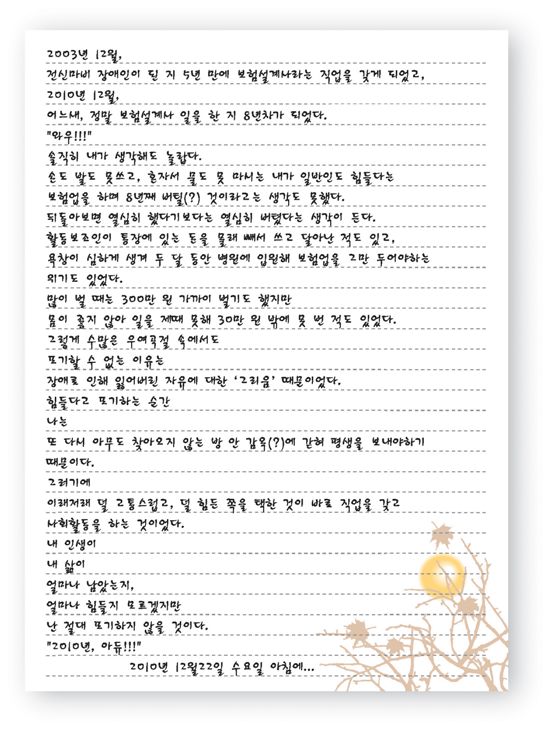 2003년 12월,
전신마비 장애인이 된 지 5년 만에 보험설계사라는 직업을 갖게 되었고,
2010년 12월,
어느새, 정말 보험설계사 일을 한 지 8년차가 되었다.
"와우!!!"
솔직히 내가 생각해도 놀랍다.
손도 발도 못쓰고, 혼자서 물도 못 마시는 내가 일반인도 힘들다는
보험업을 하며 8년째 버틸(?) 것이라고는 생각도 못했다.
뒤돌아보면 열심히 했다기보다는 열심히 버텼다는 생각이 든다.
활동보조인이 통장에 있는 돈을 몰래 빼서 쓰고 달아난 적도 있고,
욕창이 심하게 생겨 두 달 동안 병원에 입원해 보험업을 그만 두어야하는
위기도 있었다.
많이 벌 때는 300만 원 가까이 벌기도 했지만
몸이 좋지 않아 일을 제때 못해 30만 원 밖에 못 번 적도 있었다.
그렇게 수많은 우여곡절 속에서도
포기할 수 없는 이유는
장애로 인해 잃어버린 자유에 대한 '그리움' 때문이었다.
힘들다고 포기하는 순간
나는
또 다시 아무도 찾아오지 않는 방 안 감옥(?)에 갇혀 평생을 보내야하기
때문이다.
그러기에
이래저래 덜 고통스럽고, 덜 힘든 쪽을 택한 것이 바로 직업을 갖고
사회활동을 하는 것이었다.
내 인생이
내 삶이
얼마나 남았는지,
얼마나 힘들지 모르겠지만
난 절대 포기하지 않을 것이다.
"2010년, 아듀!!!"
2010년 12월22일 수요일 아침에...